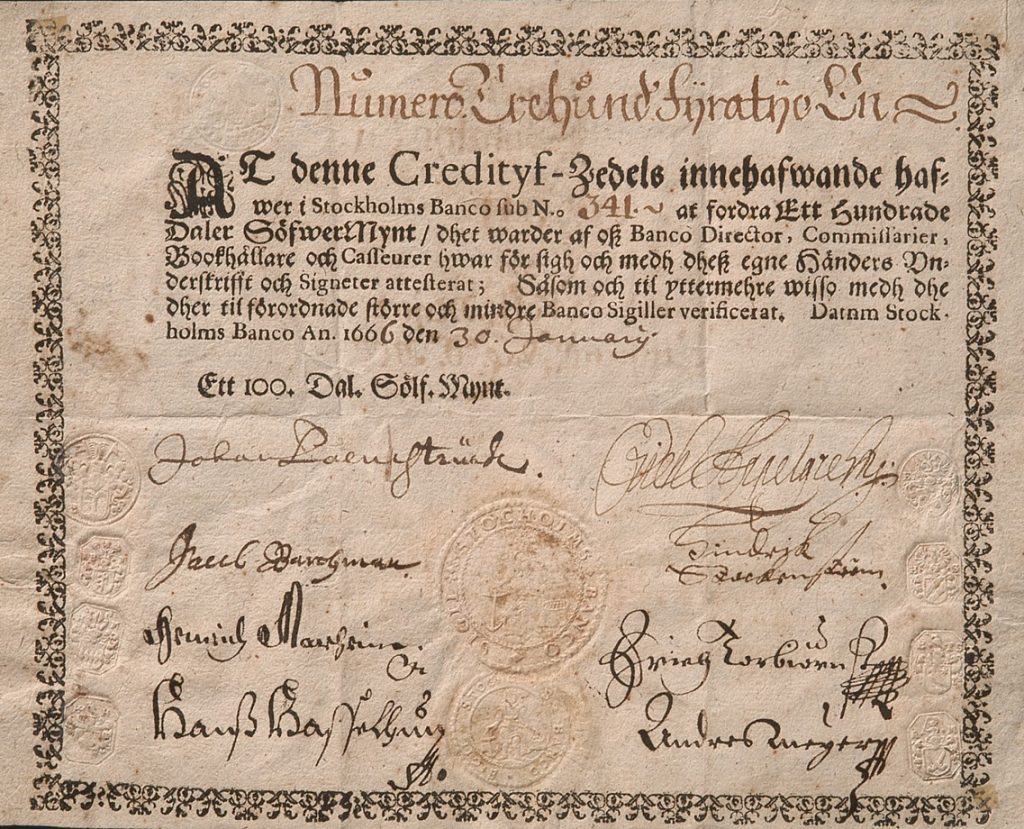 Numero Trehund' fyratijo En
AT denne Credityf-Zedels innehafwande haf-
wer i Stockholms Banco sub N.o 341. at fordra Ett Hundrade
Daler SölfwerMynt / dhet warder af oß Banco Director, Commissarier,
Bookhållare och Casseurer hwar för sigh och medh dheß egne Händers Vn-
derskrifft och Signeter attesterat; Såsom och til yttermehre wisso medh dhe
dher til förordnade större och mindre Banco Sigiller verificerat. Datum Stock-
holms Banco An. 1666 den 30. January.
Ett 100. Dal. Sölf. Mynt.
Johan
Jacob Barchman
Hindrik
Hendrich
Erich Torbiörn
Hanß Hasselhun
Andres Meyer
STOCHOLMS BANCO